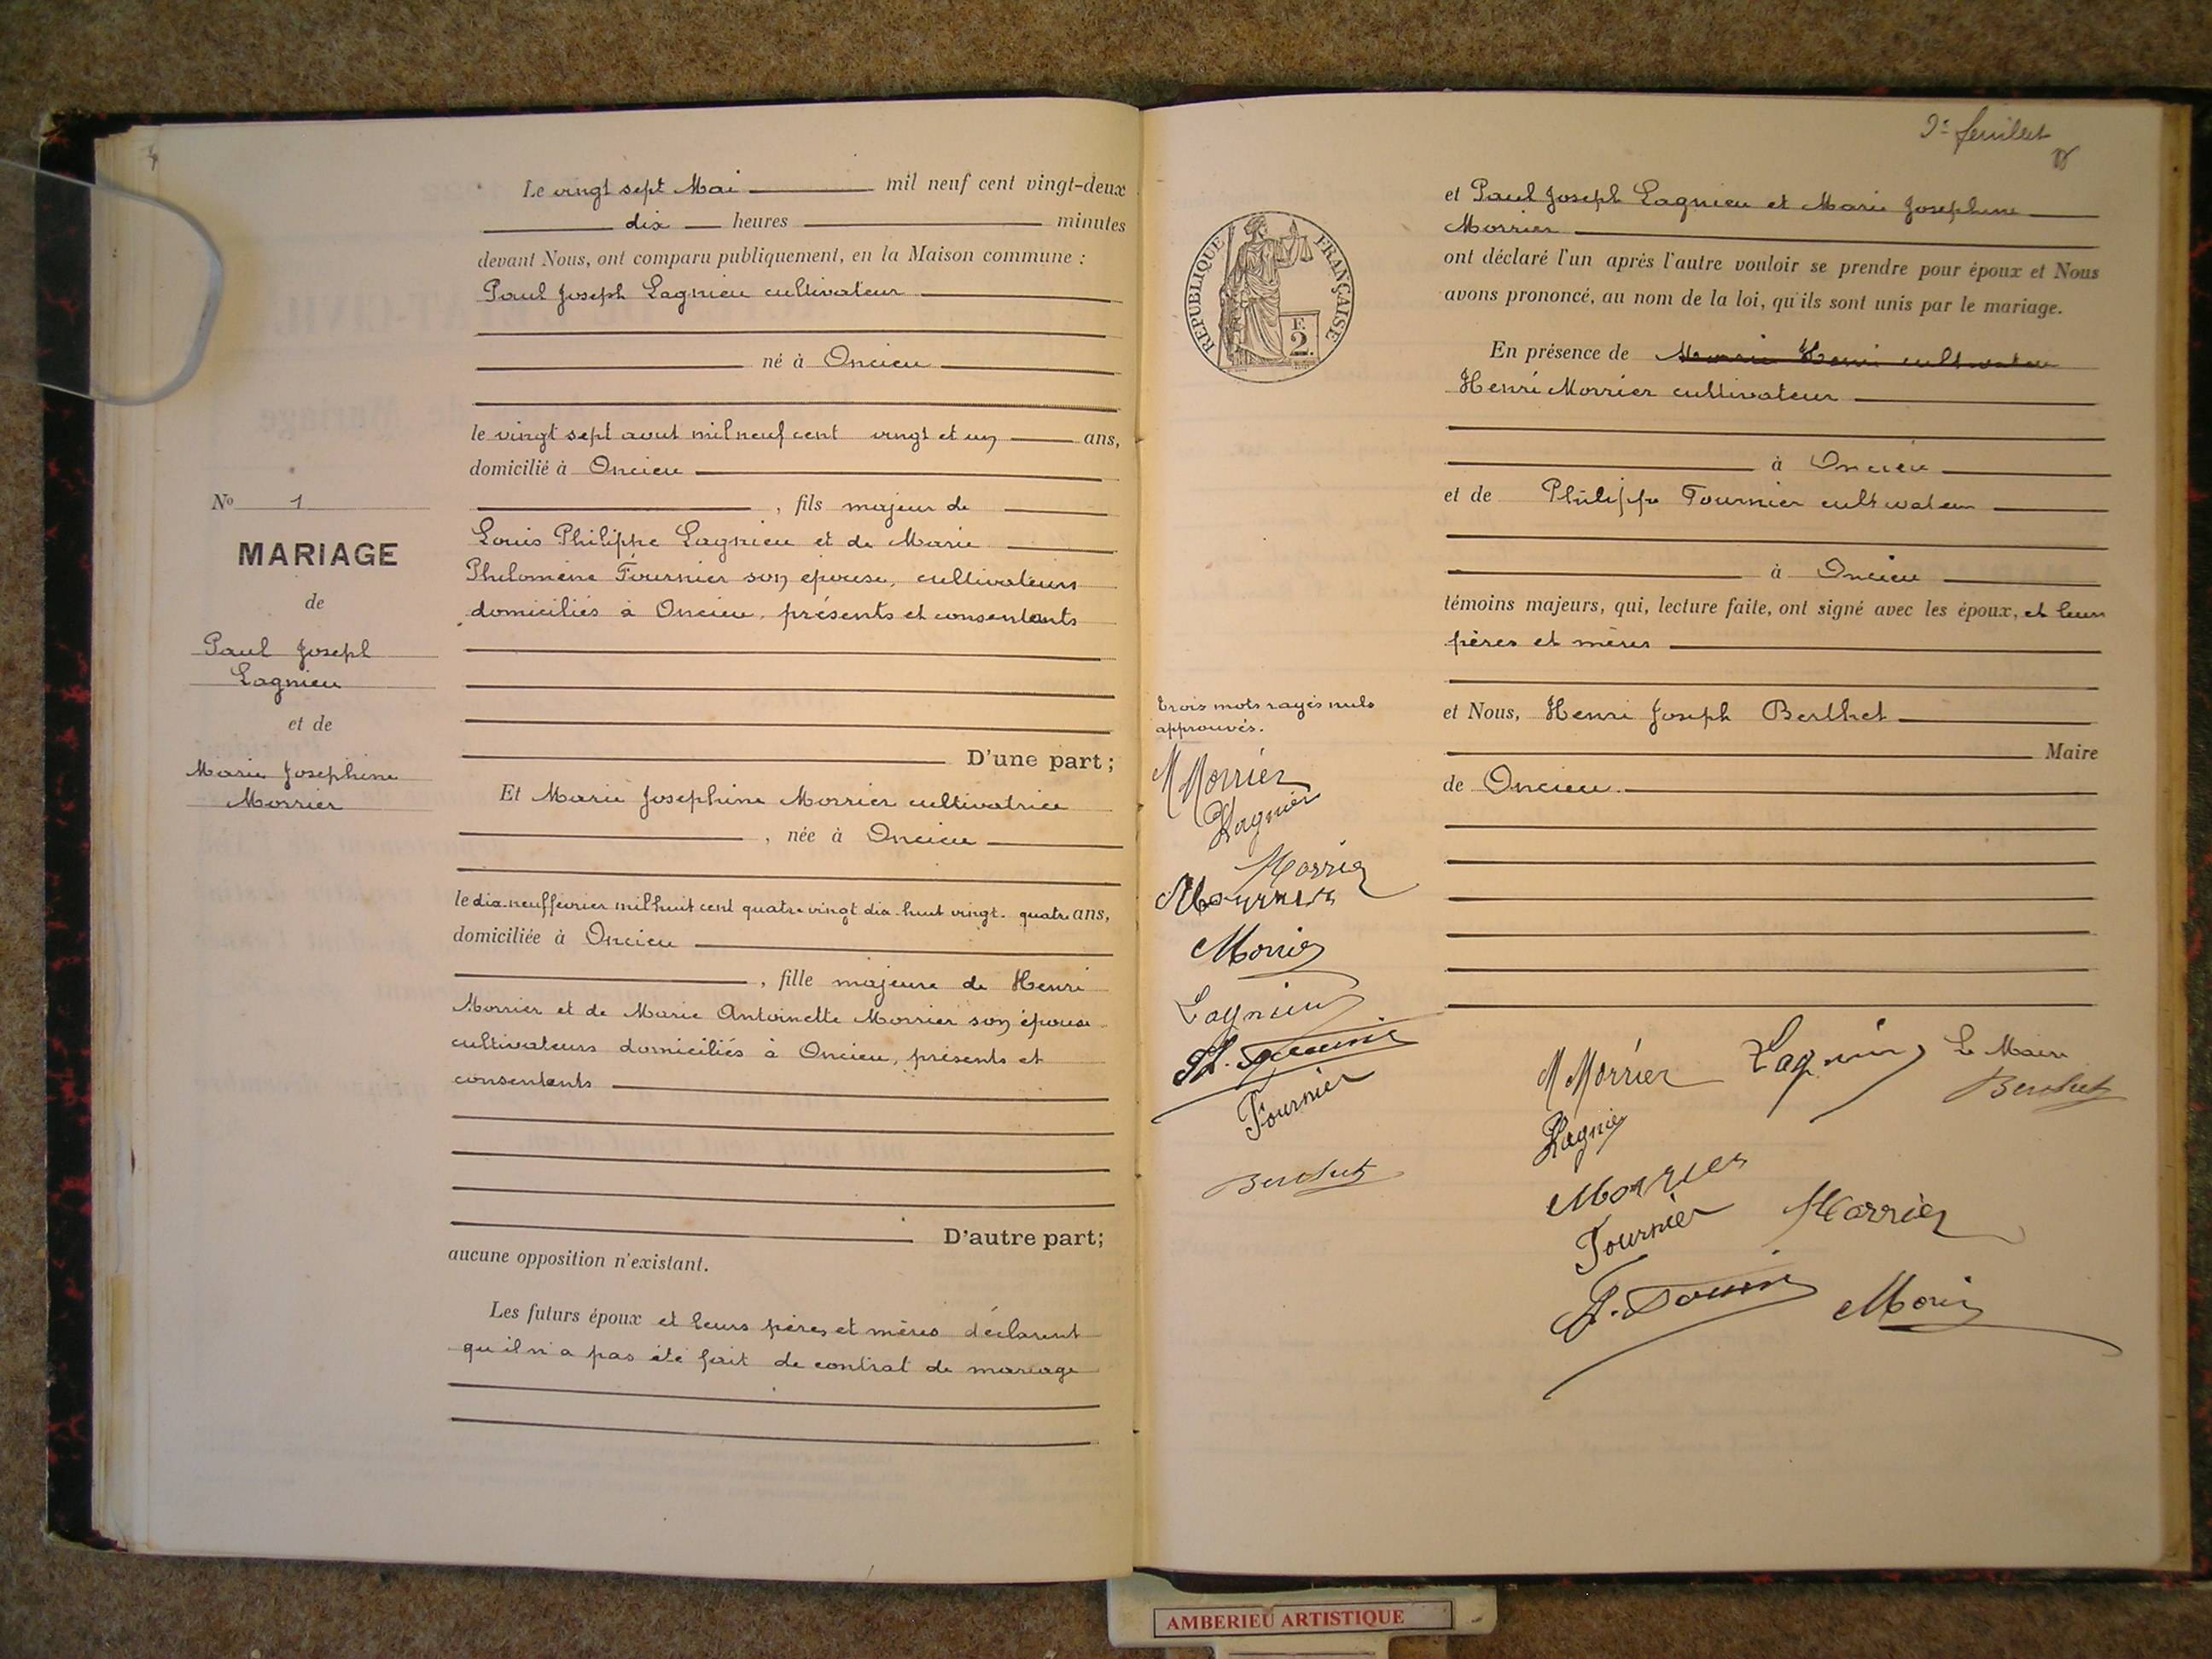 Le vingt sept Mai mil neuf cent vingt-deux
dix heures minutes
devant Nous, ont comparu publiquement, en la Maison commune :
Paul Joseph Lagnieu cultivateur
né à Oncieu
le vingt sept avut mil neuf cent vingt et un ans,
domicilié à Oncieu
, fils majeur de
Louis Philiphe Lagnieu et de Marie
Philomène Fournier son épouse, cultivateurs
domiciliés à Oncieu, présents et consentants
D'une part ;
Et Marie Josephine Morrier cultivatrice
, née à Oncieu
le dix-neuf fevrier mil huit cent quatre vingt dix-huit vingt-quatre ans,
domiciliée à Oncieu
, fille majeure de Henri
Morrier et de Marie Antoinette Morrier son épouse
cultivateurs domiciliés à Oncieu, présents et
consentants
D'autre part;
aucune opposition n'existant.
Les futurs époux et leurs pères et mères déclarent
qu'il n'a pas été fait de contrat de mariage
No 1
MARIAGE
de
Paul Joseph
Lagnieu
et de
Marie Josephine
Morrier
feuillet
REPUBLIQUE FRANÇAISE
F.
2.
et Paul Joseph Lagnieu et Marie Josephine
Morrier
ont déclaré l'un après l'autre vouloir se prendre pour époux et Nous
avons prononcé, au nom de la loi, qu'ils sont unis par le mariage.
En présence de
Henri Morrier cultivateur
à Oncieu
et de Philippe Fournier cultivateur
à Oncieu
témoins majeurs, qui, lecture faite, ont signé avec les époux, et leurs
pères et mères
et Nous, Henri Joseph Berthet
Maire
de Oncieu.
trois mots rayés nuls
approuvés.
M Morrier
Lagnier
Morrier
Morrier
Lagnieu
Fournier
Berthet
M Morrier
Lagnieu
Le Maire
Berthet
Morrier
Fournier
Morrier
AMBERIEU ARTISTIQUE